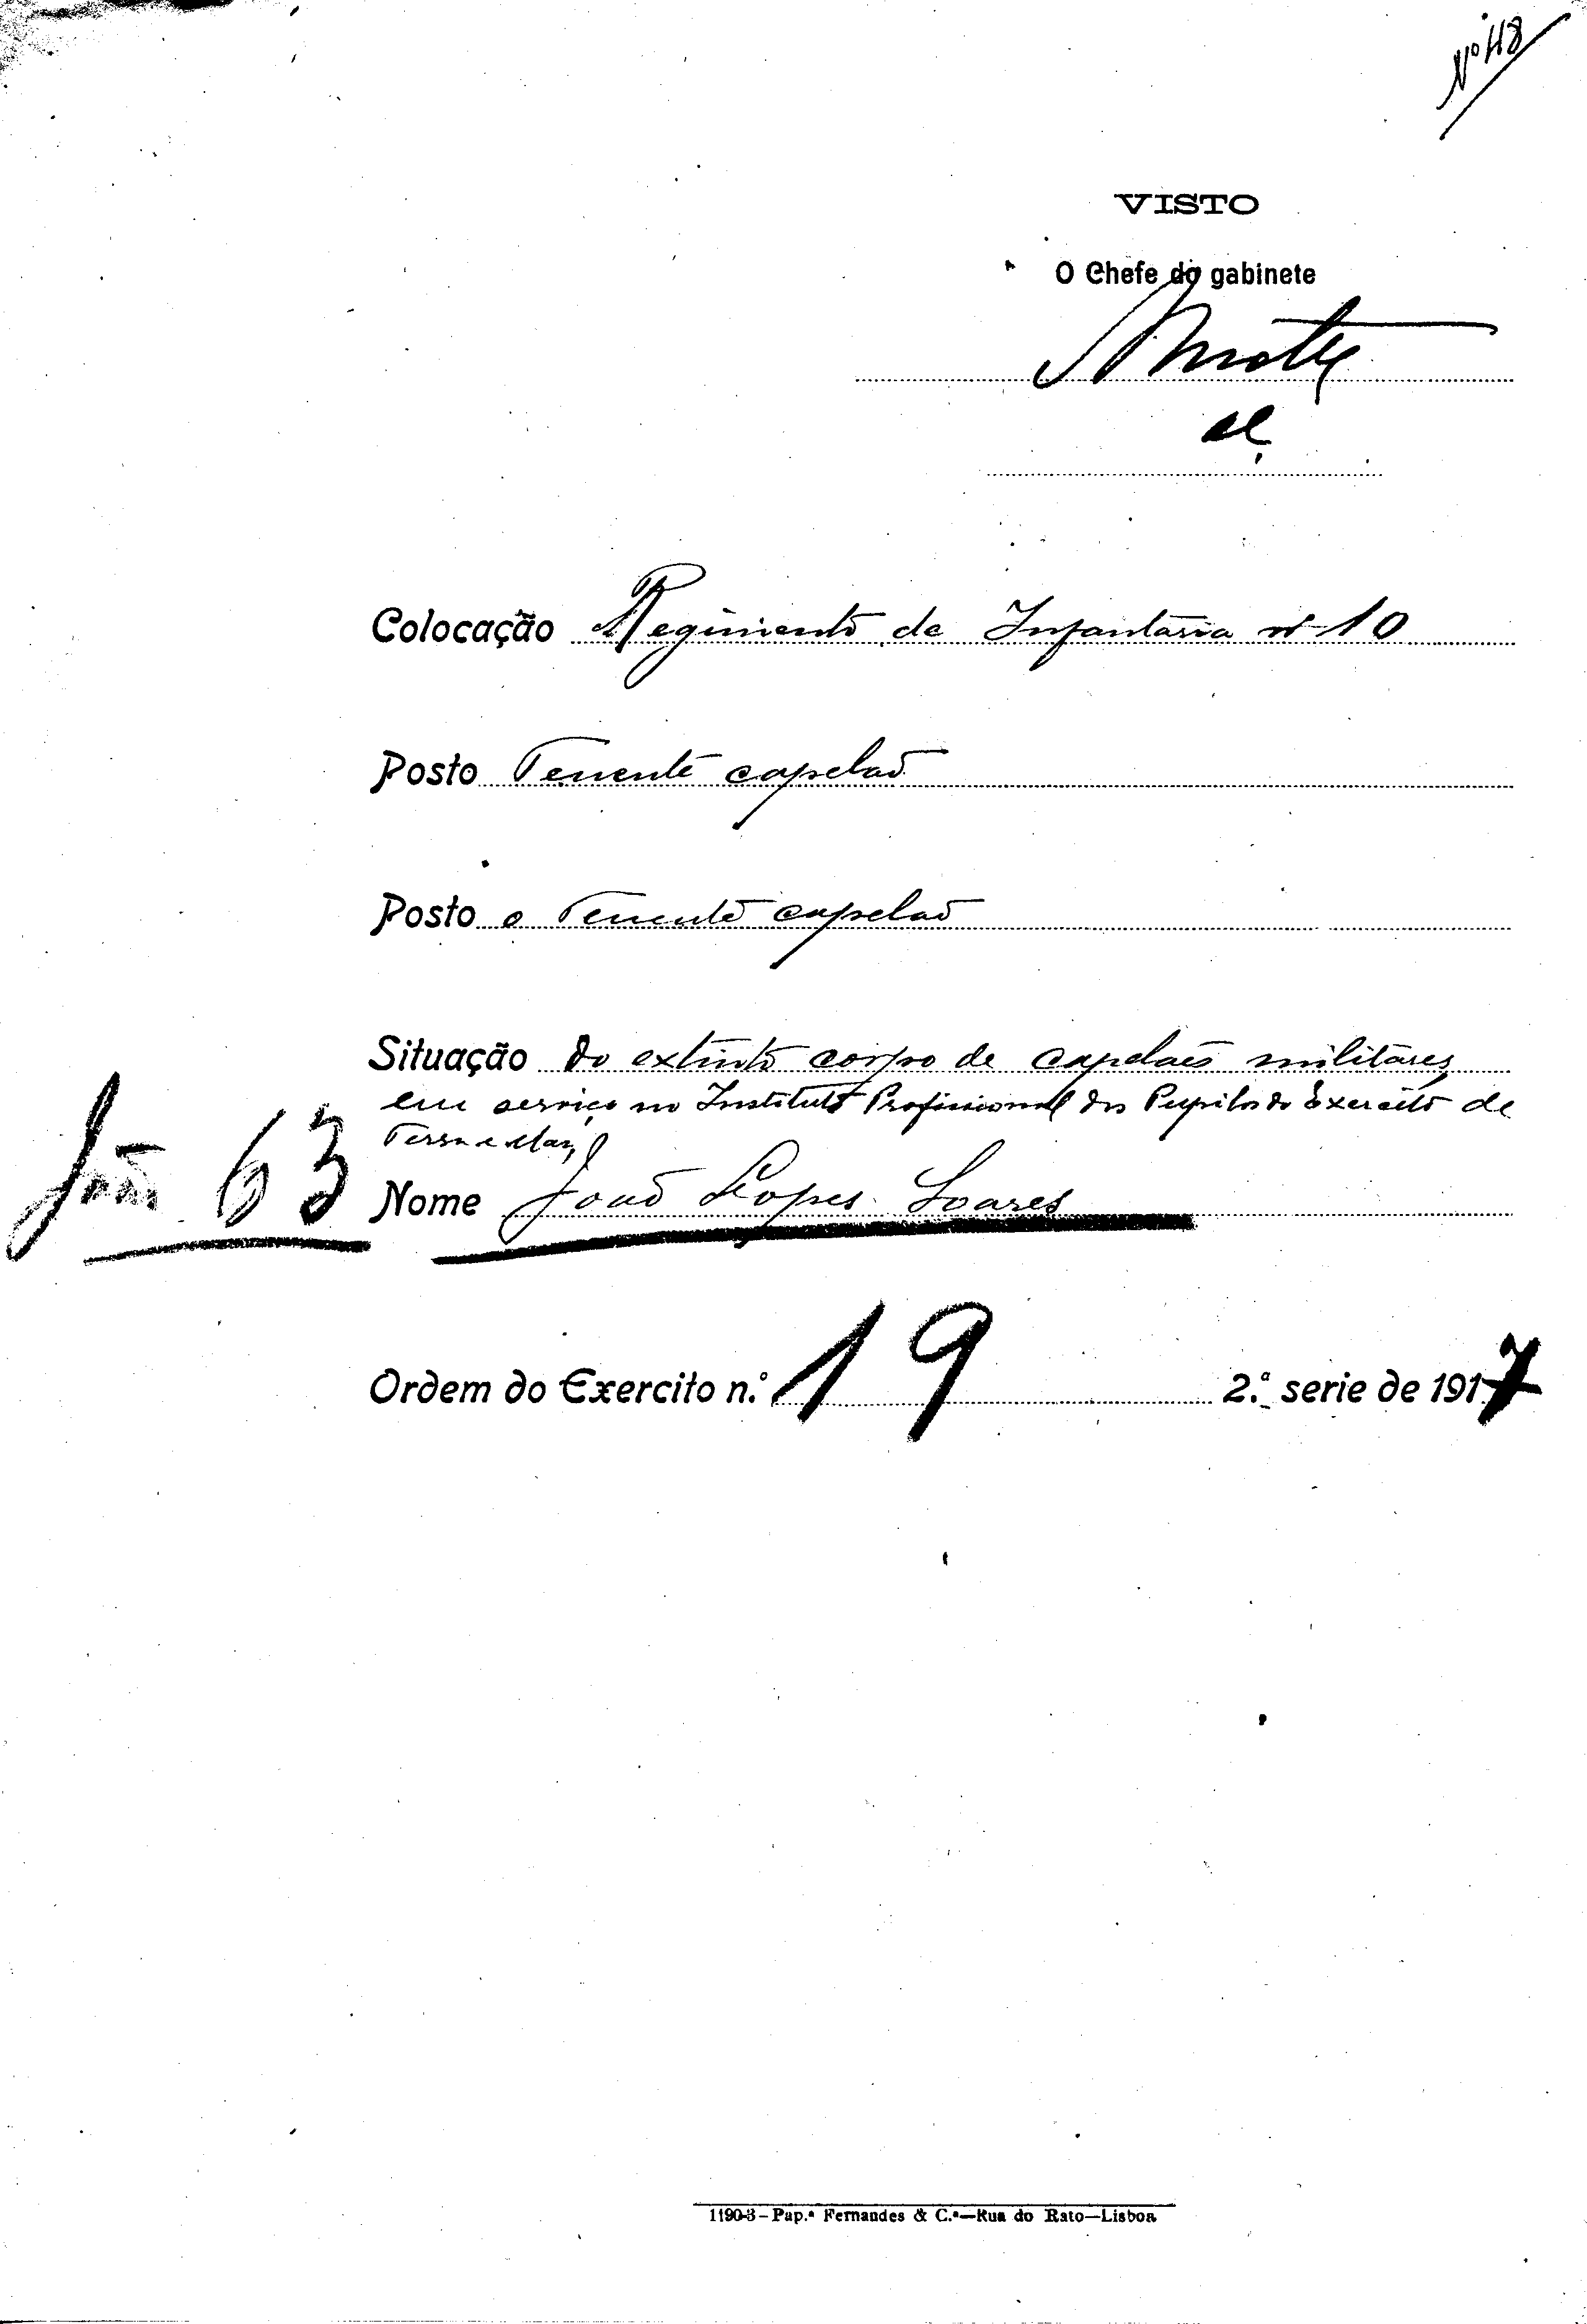 Nº 118
VISTO
O Chefe do gabinete
Colocação Regimento de Infantaria nº 10
Posto Tenente capelaõ
Posto o Tenente capelaõ
Situação do extinto corpo de capelaes militares
em serviço no Instituto Profissional dos Pupilos do Exercito de
Terra e Mar,
João 63
Nome Joaõ Lopes Soares
Ordem do Exercito n.º 19 2.ª serie de 1917
1190-3–Pap.ª Fernandes & C.ª—Rua do Rato—Lisboa